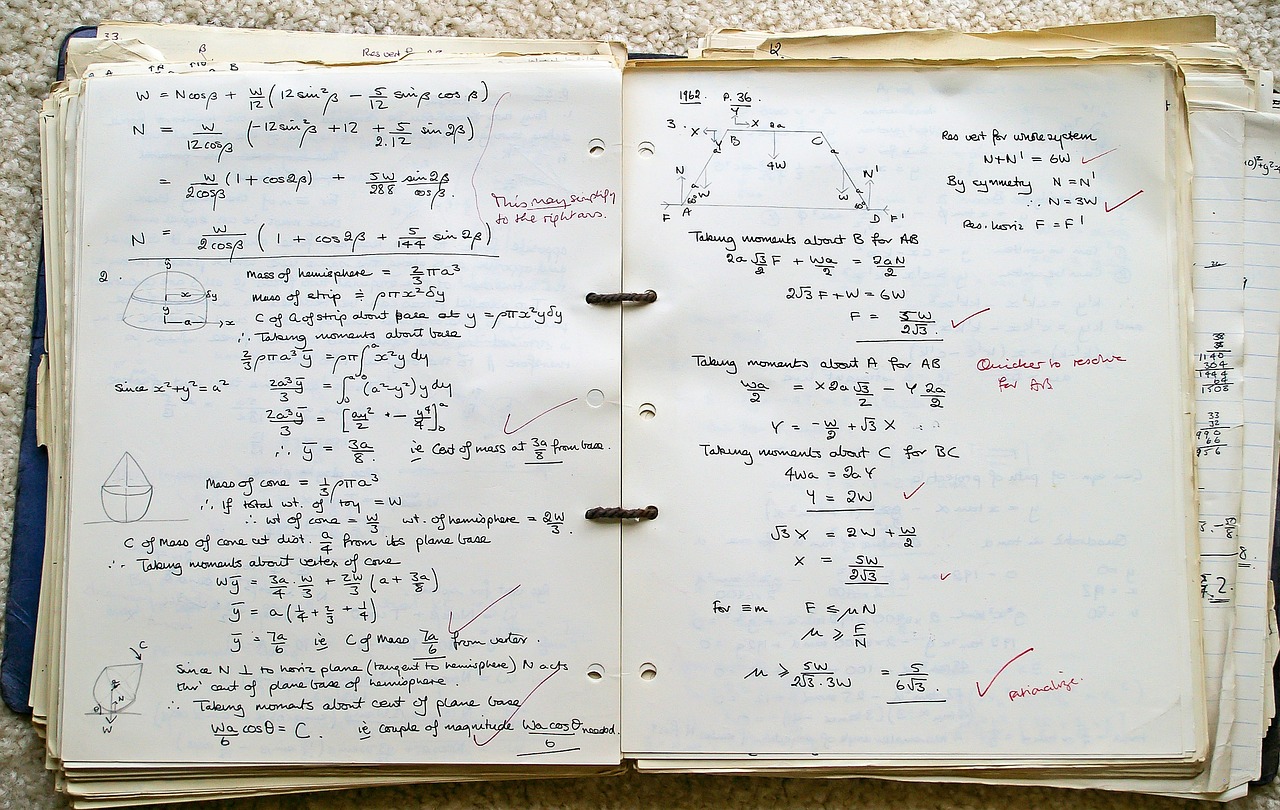 33.
β
Res vert
B
W = Ncosβ + W/12 (12sin²β − 5/12 sinβ cosβ)
N = W/12cosβ (−12sin²β + 12 + 5/2.12 sin2β)
= W/2cosβ (1 + cos2β) + 5W/288 sin2β/cosβ.
This may simplify
to the right ans.
N = W/2cosβ (1 + cos2β + 5/144 sin2β)
2.
y
x δy
y
a x
Mass of hemisphere = 2/3 πa³
Mass of strip ≑ ρπx²δy
C of G of strip about base at y = ρπx²yδy
∴ Taking moments about base
2/3 ρπa³ȳ = ρπ∫₀ᵃ x²y dy
Since x²+y²=a² 2a³ȳ/3 = ∫₀ᵃ (a²−y²)y dy
2a³ȳ/3 = [ay²/2 − y⁴/4]₀ᵃ
∴ ȳ = 3a/8 ie Cent of mass at 3a/8 from base.
Mass of cone = 1/3 ρπa³
∴ If total wt. of toy = W
∴ wt of cone = W/3 wt. of hemisphere = 2W/3.
C of Mass of cone at dist. a/4 from its plane base
∴ Taking moments about vertex of cone
Wȳ = 3a/4 . W/3 + 2W/3 (a + 3a/8)
ȳ = a(1/4 + 2/3 + 1/4)
ȳ = 7a/6 ie C of Mass 7a/6 from vertex.
C
N
θ
W
Since N ⊥ to horiz plane (tangent to hemisphere) N acts
thro' cent of plane base of hemisphere.
∴ Taking moments about cent of plane base
Wa/6 cosθ = C. ie couple of magnitude Wa cosθ/6 needed.
12.
1962. P. 36.
3.
Y
X X 2a
B C
Y a a
4W
N N'
a W W a
60° 60°
F A D F'
Res vert for whole system
N+N' = 6W
By symmetry N = N'
∴ N = 3W
Res. horiz F = F'
Taking moments about B for AB
2a √3/2 F + Wa/2 = 2aN/2
2√3 F + W = 6W
F = 5W/2√3.
Taking moments about A for AB
Quicker to resolve
for AB
Wa/2 = X 2a √3/2 − Y 2a/2
Y = −W/2 + √3 X
Taking moments about C for BC
4Wa = 2aY
Y = 2W
√3 X = 2W + W/2
X = 5W/2√3
For ≡m F ≤ μN
μ ≥ F/N
μ ≥ 5W/2√3.3W = 5/6√3.
rationalize.
38
38
1140
304
1444
64
1508
33
32
990
66
956